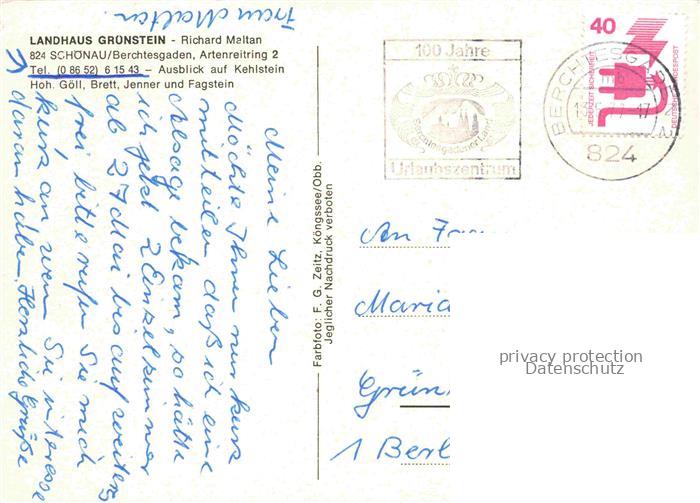 LANDHAUS GRÜNSTEIN - Richard Meltan
824 SCHÖNAU/Berchtesgaden, Artenreitring 2
Tel. (0 86 52) 6 15 43 – Ausblick auf Kehlstein
Hoh. Göll, Brett, Jenner und Fagstein
Meine Lieben
Möchte Ihnen nur kurz
mitteilen daß ich eine
Absage bekam, so hätte
ich jetzt 2 Einzelzimmer
ab 27 Mai bis auf weiteres
frei bitte rufen Sie mich
kurz an wenn Sie interesse
daran haben. Herzliche Grüße
Frau Meltan.
Farbfoto: F. G. Zeitz, Köngssee/Obb.
Jeglicher Nachdruck verboten
100 Jahre
Berchtesgadener Land
Urlaubszentrum
BERCHTESGADEN 2
824
40
JEDERZEIT SICHERHEIT
DEUTSCHE BUNDESPOST
An
Maria
Grün
1 Berl
privacy protection
Datenschutz